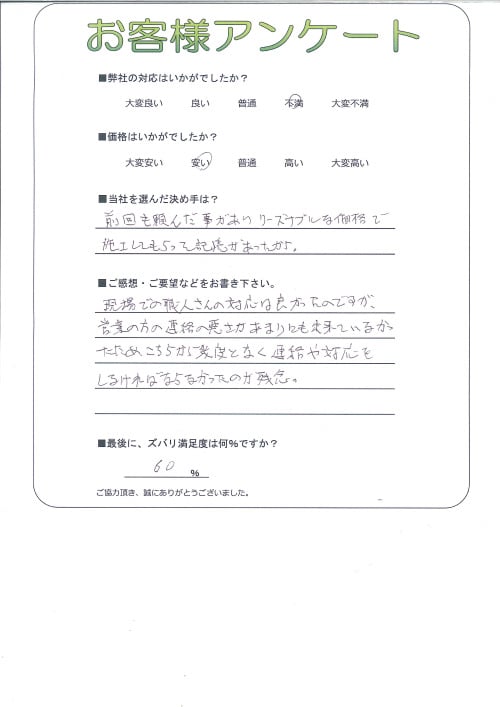 お客様アンケート
■弊社の対応はいかがでしたか？
大変良い 良い 普通 不満 大変不満
■価格はいかがでしたか？
大変安い 安い 普通 高い 大変高い
■当社を選んだ決め手は？
前回も頼んだ事があり リーズナブルな価格で
施工してもらって記憶があったから。
■ご感想・ご要望などをお書き下さい。
現場での職人さんの対応は良かったのですが、
営業の方の連絡の悪さがあまりにも
ためこちらから数度となく連絡や対応を
しなければならなかったのが残念。
■最後に、ズバリ満足度は何%ですか？
60 %
ご協力頂き、誠にありがとうございました。